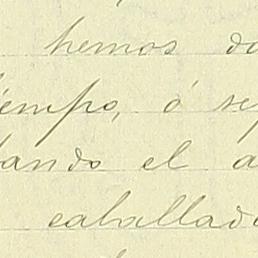 hemos do
iempo, ó se
ando el a
caballado